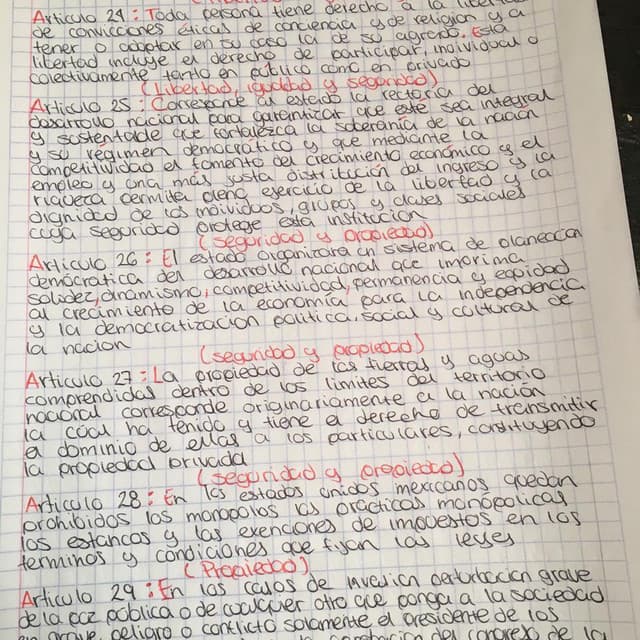 Articulo 24 : Toda persona tiene derecho a la libertad
de convicciones éticas de conciencia y de religion y a
tener o adoptar en su caso la de su agrado. Esta
libertad incluye el derecho de participar, individual o
colectivamente tanto en público como en privado
(Libertad, igualdad y seguridad)
Articulo 25 : Corresponde al estado la rectoria del
desarrollo nacional para garantizar que este sea integral
y sustentable que fortalezca la soberania de la nacion
y su régimen democratico y que mediante la
competitividad el fomento del crecimiento económico y el
empleo y una más justa distribución del ingreso y la
riqueza permita pleno ejercicio de la libertad y la
dignidad de los individuos, grupos y clases sociales
cuya seguridad protege esta institucion
(seguridad y propiedad)
Articulo 26 : El estado organizara un sistema de planeación
democratica del desarrollo nacional que imprima
solidez, dinamismo, competitividad, permanencia y equidad
al crecimiento de la economia para la independencia
y la democratización politica, social y cultural de
la nacion
(seguridad y propiedad)
Articulo 27 : La propiedad de las tierras y aguas
comprendidas dentro de los limites del territorio
nacional corresponde originariamente a la nación
la cual ha tenido y tiene el derecho de transmitir
el dominio de ellas a los particulares, constituyendo
la propiedad privada
(seguridad y propiedad)
Articulo 28 : En los estados unidos mexicanos quedan
prohibidos los monopolios las prácticas monópolicas
los estancos y las exenciones de impuestos en los
terminos y condiciónes que fijan las leyes
(Propiedad)
Articulo 29 : En los casos de invacion perturbacion grave
de la paz pública o de cualquier otro que ponga a la sociedad
en grave peligro o conflicto solamente el presidente de los